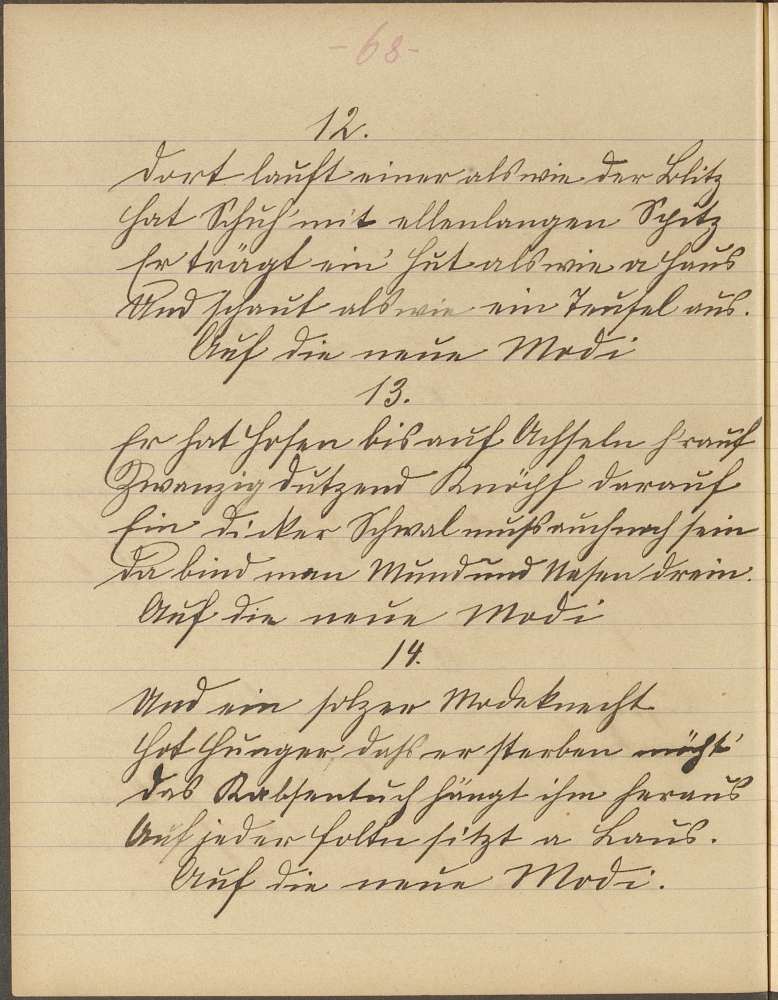 - 68 -
12.
Dort lauft einer als wie der Blitz
Hat Schuh' mit ellenlangen Spitz
Er trägt ein' Hut als wie a Haus
Und schaut als wie ein Teufel aus.
Auf die neue Modi
13.
Er hat Hosen bis auf Achseln h'rauf
Zwanzig Dutzend Knöpf darauf
Ein dicker Schwal muß auch noch sein
Da bind man Mund und Nasen drein.
Auf die neue Modi
14.
Und ein solzer Modeknecht
Hat Hunger, daß er sterben möcht'
Das Rabsentuch hängt ihm heraus
Auf jeder Falten sitzt a Laus.
Auf die neue Modi.